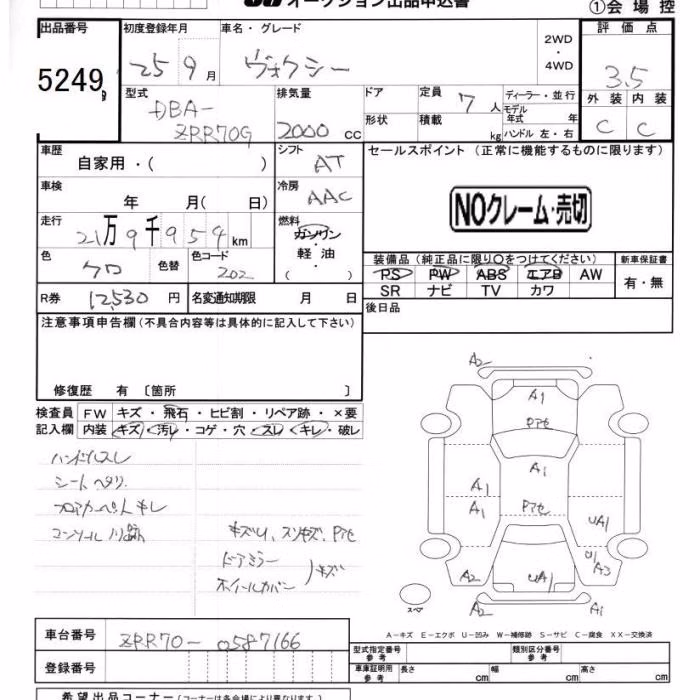 オークション出品申込書
①会場控
出品番号 初度登録年月 車名・グレード 2WD ・ 4WD 評価点
5249 25 9月 ヴォクシー 3.5
型式 DBA-ZRR70G 排気量 2000 cc ドア 形状 定員 7人 積載 kg ディーラー・並行 モデル年式 年 ハンドル 左・右
外装 内装
C C
車歴 自家用・( ) シフト AT セールスポイント (正常に機能するものに限ります)
車検 年 月( 日) 冷房 AAC
NOクレーム・売切
走行 21万9千959km 燃料 ガソリン ・ 軽油 ・ ( )
色 クロ 色替 色コード 202
装備品 (純正品に限り○をつけてください) 新車保証書
PS PW ABS エアB AW 有・無
SR ナビ TV カワ
R券 12,530円 名変通知期限 月 日
後日品
注意事項申告欄 (不具合内容等は具体的に記入して下さい)
修復歴 有 〔箇所 〕
検査員 FW キズ・飛石・ヒビ割・リペア跡・×要
記入欄 内装 キズ・汚レ・コゲ・穴・スレ・キレ・破レ
ハンドルスレ
シートヘタリ
フロアカーペットキレ
コンソールノリ跡
キズU、スリキズ、Pアセ
ドアミラー
ホイールカバー キズ
A2
A1
Pアセ
A1
A1
A1 Pアセ
UA1
U1
A2 UA1 A3
A2 A1
スペア
A-キズ E-エクボ U-凹み W-補修跡 S-サビ C-腐食 XX-交換済
車台番号 ZRR70-0587166
登録番号
型式指定番号 参考 類別区分番号 参考
車庫証明用 参考 長さ cm 幅 cm 高さ cm
希望出品コーナー (コーナーは各会場により異なります)